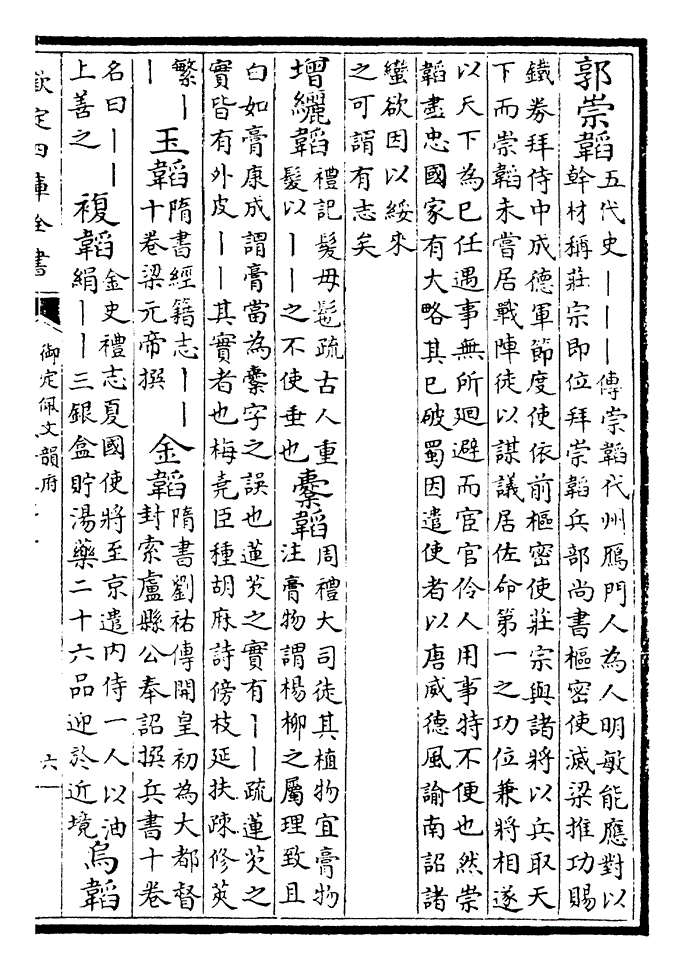 郭崇韜五代史｜｜｜傳崇韜代州鴈門人為人明敏能應對以
幹材稱莊宗即位拜崇韜兵部尚書樞密使滅梁推功賜
鐵劵拜侍中成德軍節度使依前樞密使莊宗與諸將以兵取天
下而崇韜未嘗居戰陣徒以謀議居佐命第一之功位兼將相遂
以天下為已任遇事無所廻避而宦官伶人用事特不便也然崇
韜盡忠國家有大略其已破蜀因遣使者以唐威德風諭南詔諸
蠻欲因以綏來
之可謂有志矣
增纚韜禮記髮毋髢疏古人重
髮以｜｜之不使垂也
櫜韜周禮大司徒其植物宜膏物
注膏物謂楊柳之屬理致且
白如膏康成謂膏當為櫜字之誤也蓮芡之實有｜｜疏蓮芡之
實皆有外皮｜｜其實者也梅堯臣種胡麻詩傍枝延扶疎修莢
繁｜
｜
玉韜隋書經籍志｜｜
十卷梁元帝撰
金韜隋書劉祐傳開皇初為大都督
封索盧縣公奉詔撰兵書十卷
名曰｜｜
上善之
複韜金史禮志夏國使將至京遣内侍一人以油
絹｜｜三銀盒貯湯藥二十六品迎於近境
烏韜
欽定四庫全書
御定佩文韻府
六